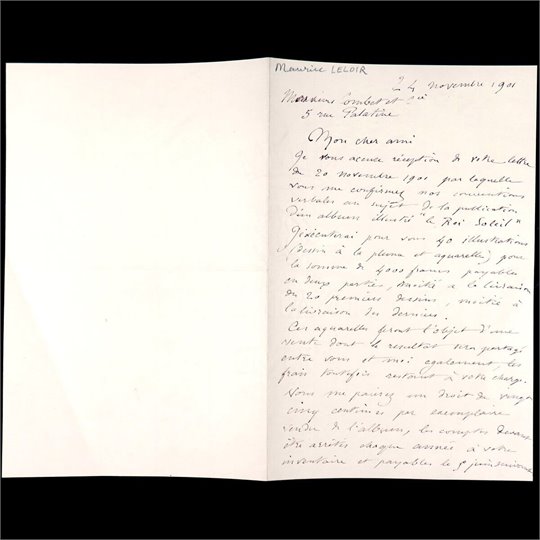 Maurice LELOIR
24 novembre 1901
Messieurs Combet et Cie
5 rue Palatine
Mon cher ami
Je vous accuse réception de votre lettre
du 20 novembre 1901 par laquelle
vous me confirmez nos conventions
verbales au sujet de la publication
d'un album illustré "le Roi Soleil"
J'exécuterai pour vous 40 illustrations
(dessin à la plume et aquarelle) pour
la somme de 4000 francs payables
en deux parties, moitié à la livraison
des 20 premiers dessins, moitié à
la livraison des derniers.
Ces aquarelles feront l'objet d'une
vente dont le résultat sera partagé
entre vous et moi également, les
frais toutefois restant à votre charge.
Vous me paierez un droit de vingt
cinq centimes par exemplaire
vendu de l'album, les comptes devant
être arrêtés chaque année à votre
inventaire et payables le 5 juin suivant